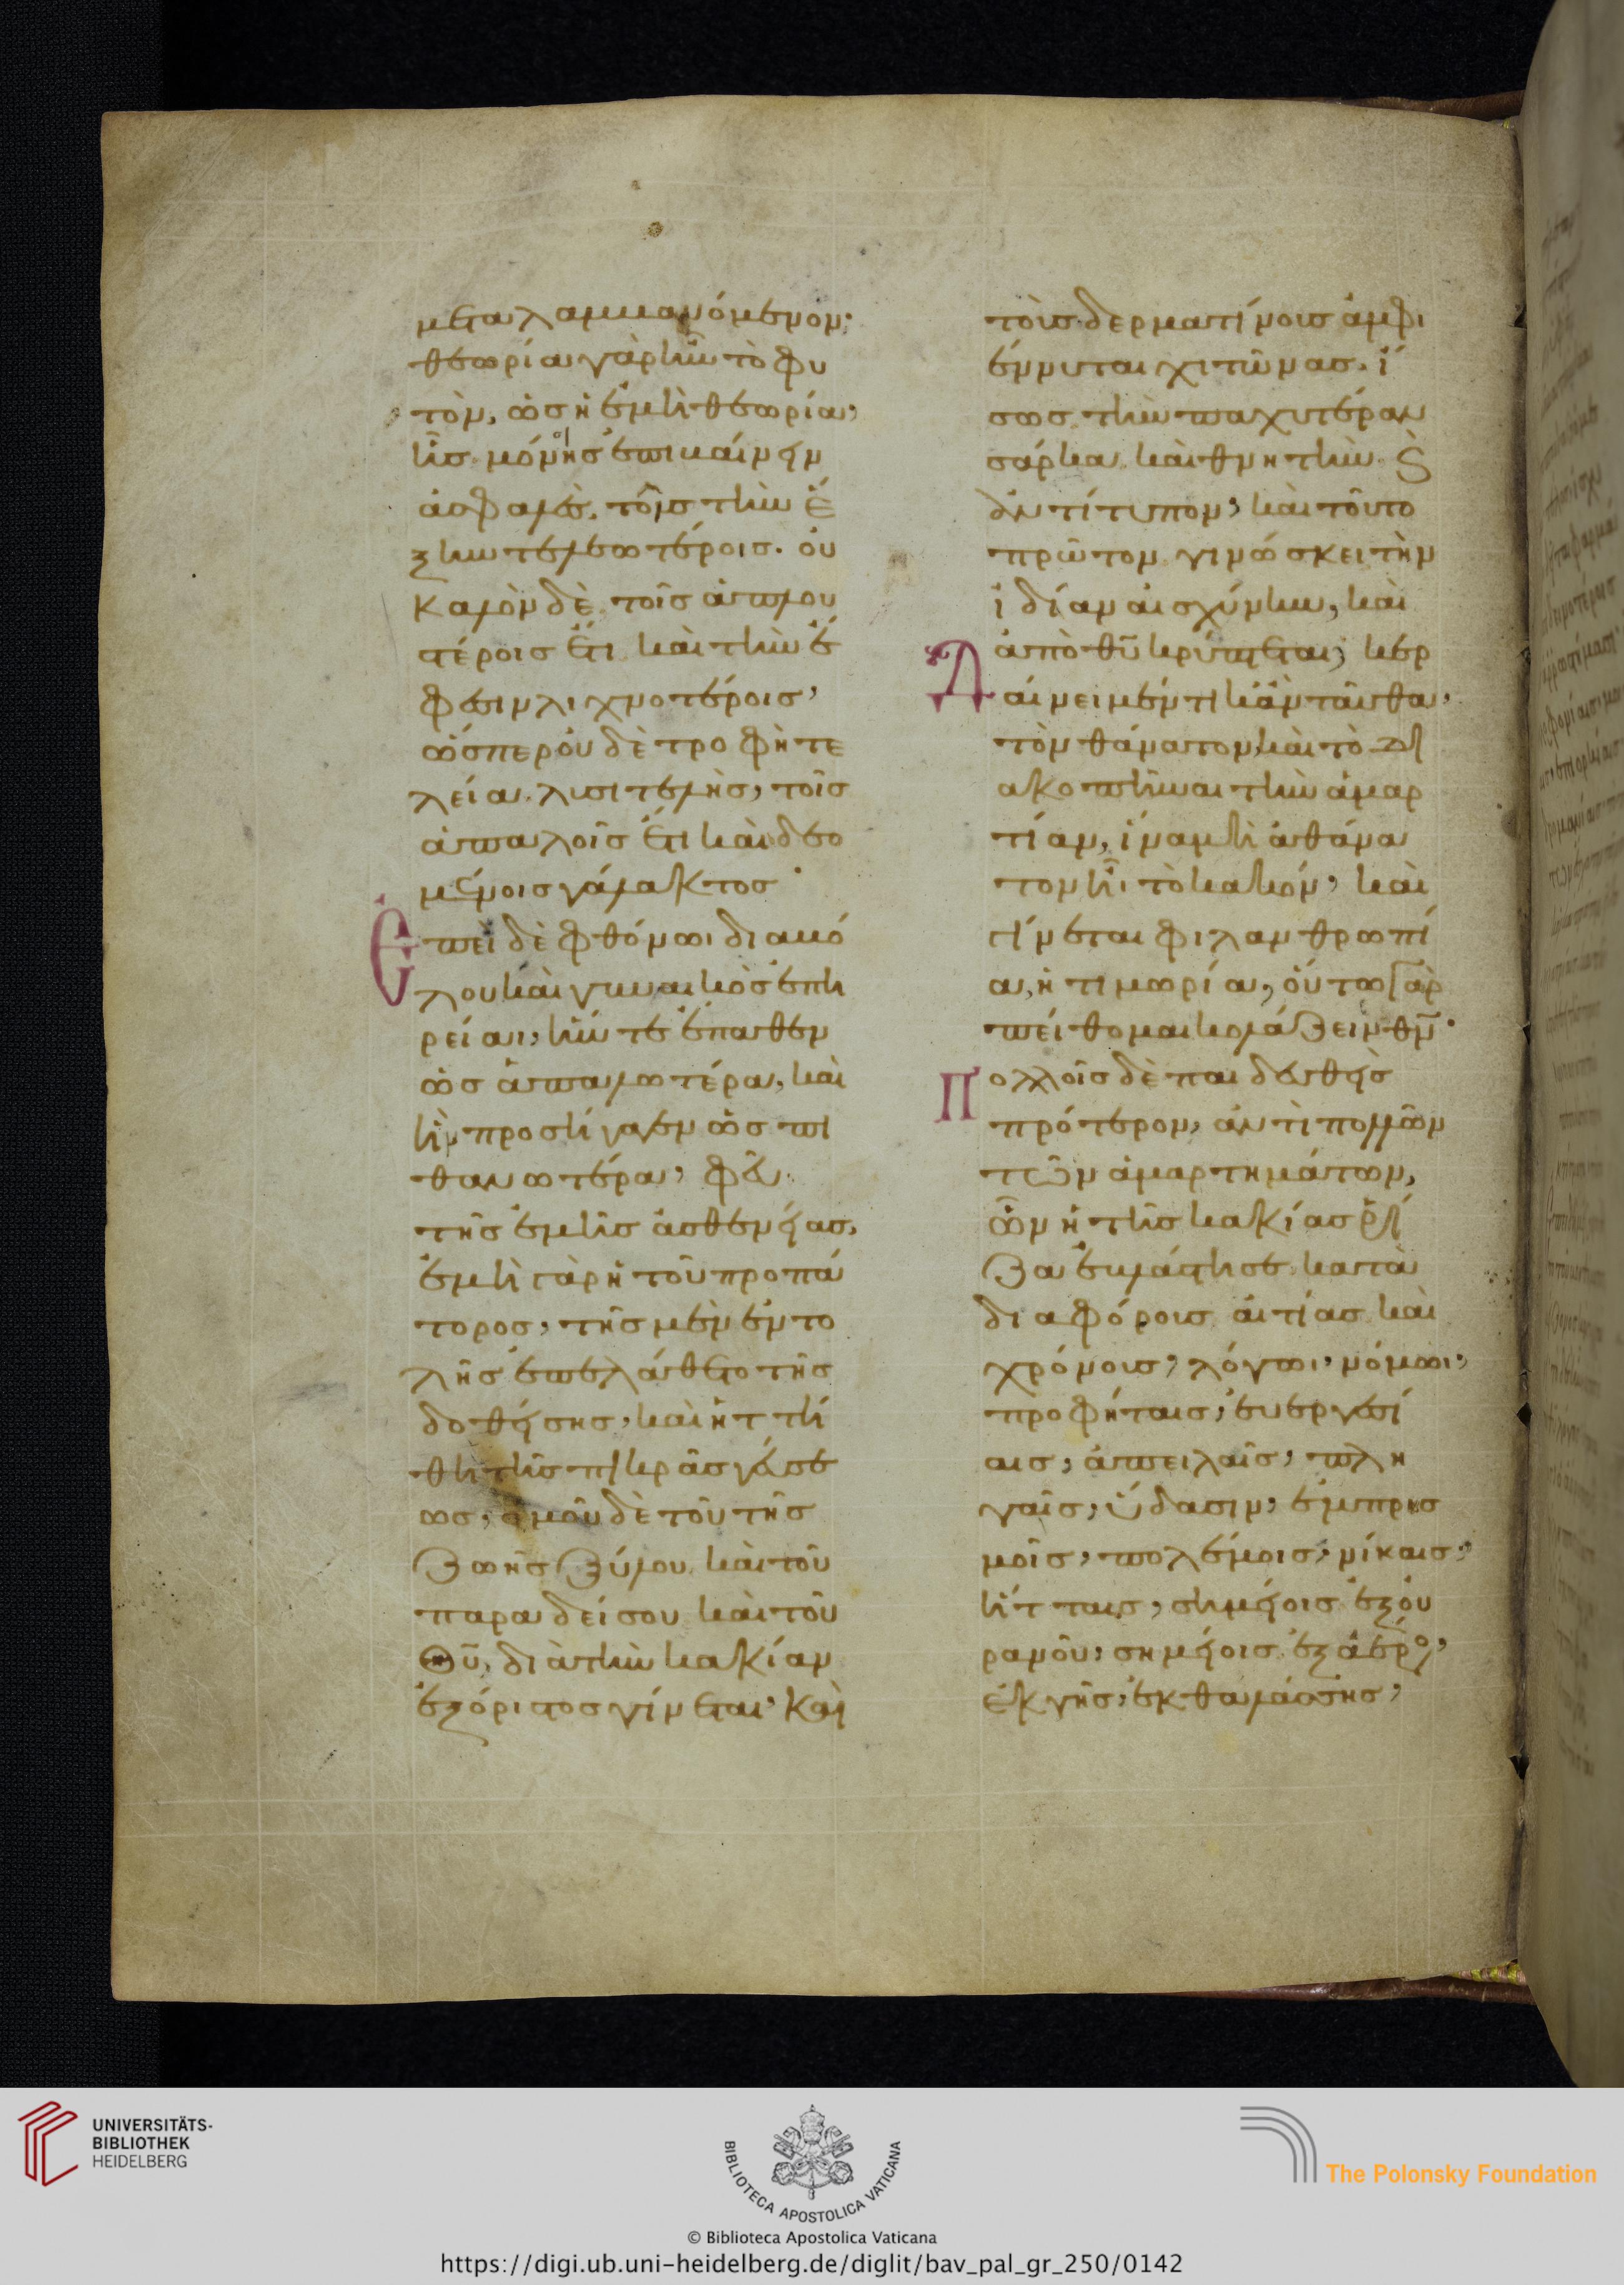 μεταλαμβανόμενον·
θεωρία γὰρ ἦν τὸ φυ
τὸν, ὡς ἡ ἐμὴ θεωρία,
ἧς μόνοις ἐπιβαίνειν
ἀσφαλὲς, τοῖς τὴν ἕ
ξιν τελεωτέροις. οὐ
καλὸν δὲ τοῖς ἁπλου
στέροις ἔτι καὶ τὴν ἔ
φεσιν λιχνοτέροις,
ὥσπερ οὐδὲ τροφὴ τε
λεία λυσιτελὴς, τοῖς
ἁπαλοῖς ἔτι καὶ δεο
μένοις γάλακτος·
Ἐπεὶ δὲ φθόνωι διαβό
λου καὶ γυναικὸς ἐπη
ρείαι, ἥν τε ἔπαθεν
ὡς ἁπαλωτέρα, καὶ
ἣν προσήγαγεν ὡς πι
θανωτέρα, φεῦ
τῆς ἐμῆς ἀσθενείας,
ἐμὴ γὰρ ἡ τοῦ προπά
τορος, τῆς μὲν ἐντο
λῆς ἐπελάθετο τῆς
δοθείσης, καὶ ἡττή
θη τῆς πικρᾶς γεύσε
ως, ὁμοῦ δὲ τοῦ τῆς
ζωῆς ξύλου καὶ τοῦ
παραδείσου καὶ τοῦ
Θυ, διὰ τὴν κακίαν
ἐξόριστος γίνεται, καὶ
τοὺς δερματίνους ἀμφι
έννυται χιτῶνας. ἴ
σως τὴν παχυτέραν
σάρκα καὶ θνητὴν ϛ
ἀντίτυπον, καὶ τοῦτο
πρῶτον γινώσκει τὴν
ἰδίαν αἰσχύνην, καὶ
ἀπὸ θυ κρύπτεται, κερ
δαίνει μέν τι κἀνταῦθα,
τὸν θάνατον, καὶ τὸ δι
ακοπῆναι τὴν ἁμαρ
τίαν, ἵνα μὴ ἀθάνα
τον ἦι τὸ κακόν, καὶ
γίνεται φιλανθρωπί
α, ἡ τιμωρία, οὕτω γὰρ
πείθομαι κολάζειν θν·
Πολλοῖς δὲ παιδευθεὶς
πρότερον, ἀντὶ πολλῶν
τῶν ἁμαρτημάτων,
ὧν ἡ τῆς κακίας ῥί
ζα ἐβλάστησε κατὰ
διαφόρους αἰτίας καὶ
χρόνους, λόγωι, νόμωι,
προφήταις, εὐεργεσί
αις, ἀπειλαῖς, πλη
γαῖς, ὕδασιν, ἐμπρησ
μοῖς, πολέμοις, νίκαις,
ἥτταις, σημείοις ἐξ οὐ
ρανοῦ, σημείοις ἐξ ἀέρος,
ἐκ γῆς, ἐκ θαλάσσης,
UNIVERSITÄTS-
BIBLIOTHEK
HEIDELBERG
BIBLIOTECA APOSTOLICA VATICANA
© Biblioteca Apostolica Vaticana
The Polonsky Foundation
https://digi.ub.uni-heidelberg.de/diglit/bav_pal_gr_250/0142